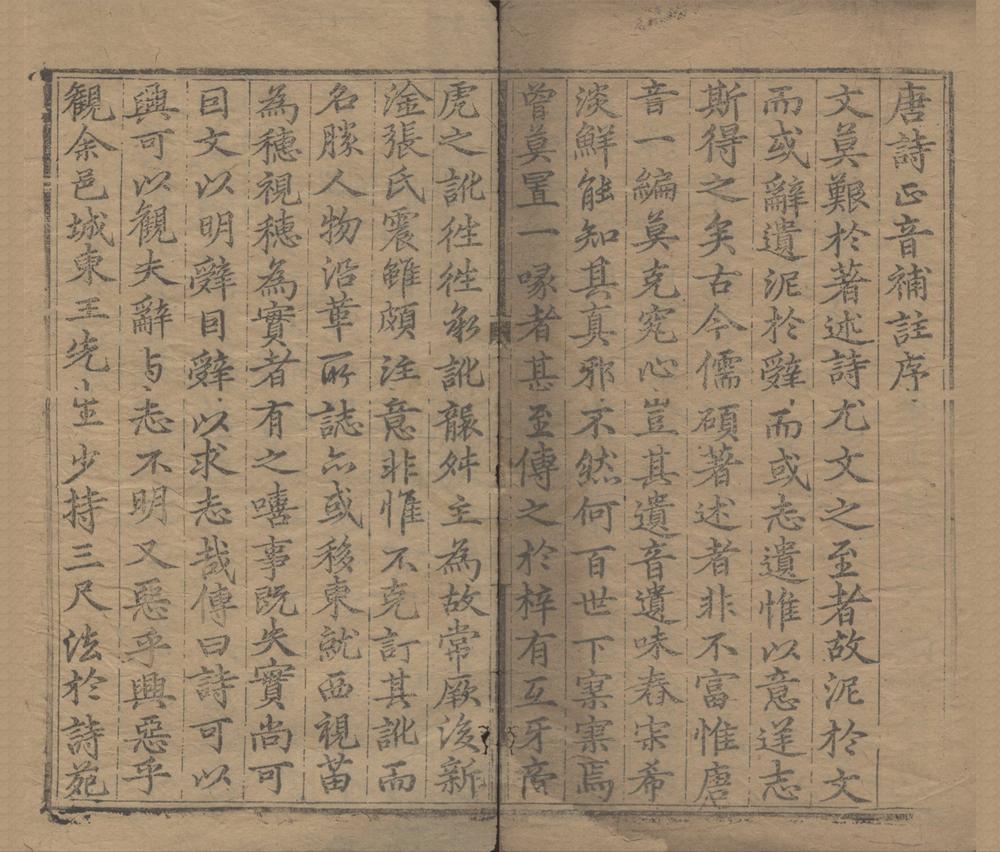 唐詩正音補註序
文莫艱於著述詩尤文之至者故泥於文
而或辭遺泥於辤而或志遺惟以意逆志
斯得之矣古今儒碩著述者非不富惟唐
音一編莫克究心豈其遺音遺味舂容希
淡鮮能知其真邪不然何百世下寥寥焉
曾莫置一喙者甚至傳之於梓有互牙啇
虎之訛徃徃承訛襲舛主為故常厥後新
淦張氏震雖頗注意非惟不克訂其訛而
名勝人物沿革所誌亦或移東就西視苗
為穗視穗為實者有之噫事既失實尚可
因文以明辤因辤以求志哉傳曰詩可以
興可以觀夫辭与志不明又惡乎興惡乎
觀余邑城東王先生少持三尺法於詩苑